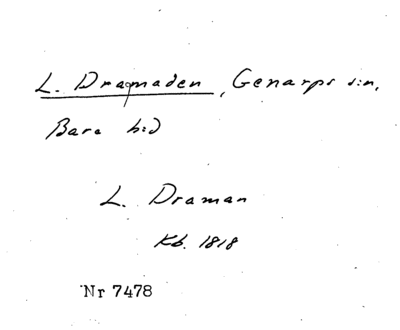 L. Dragmaden, Genarps s:n,
Bara h:d
L. Draman
Kb. 1818
Nr 7478